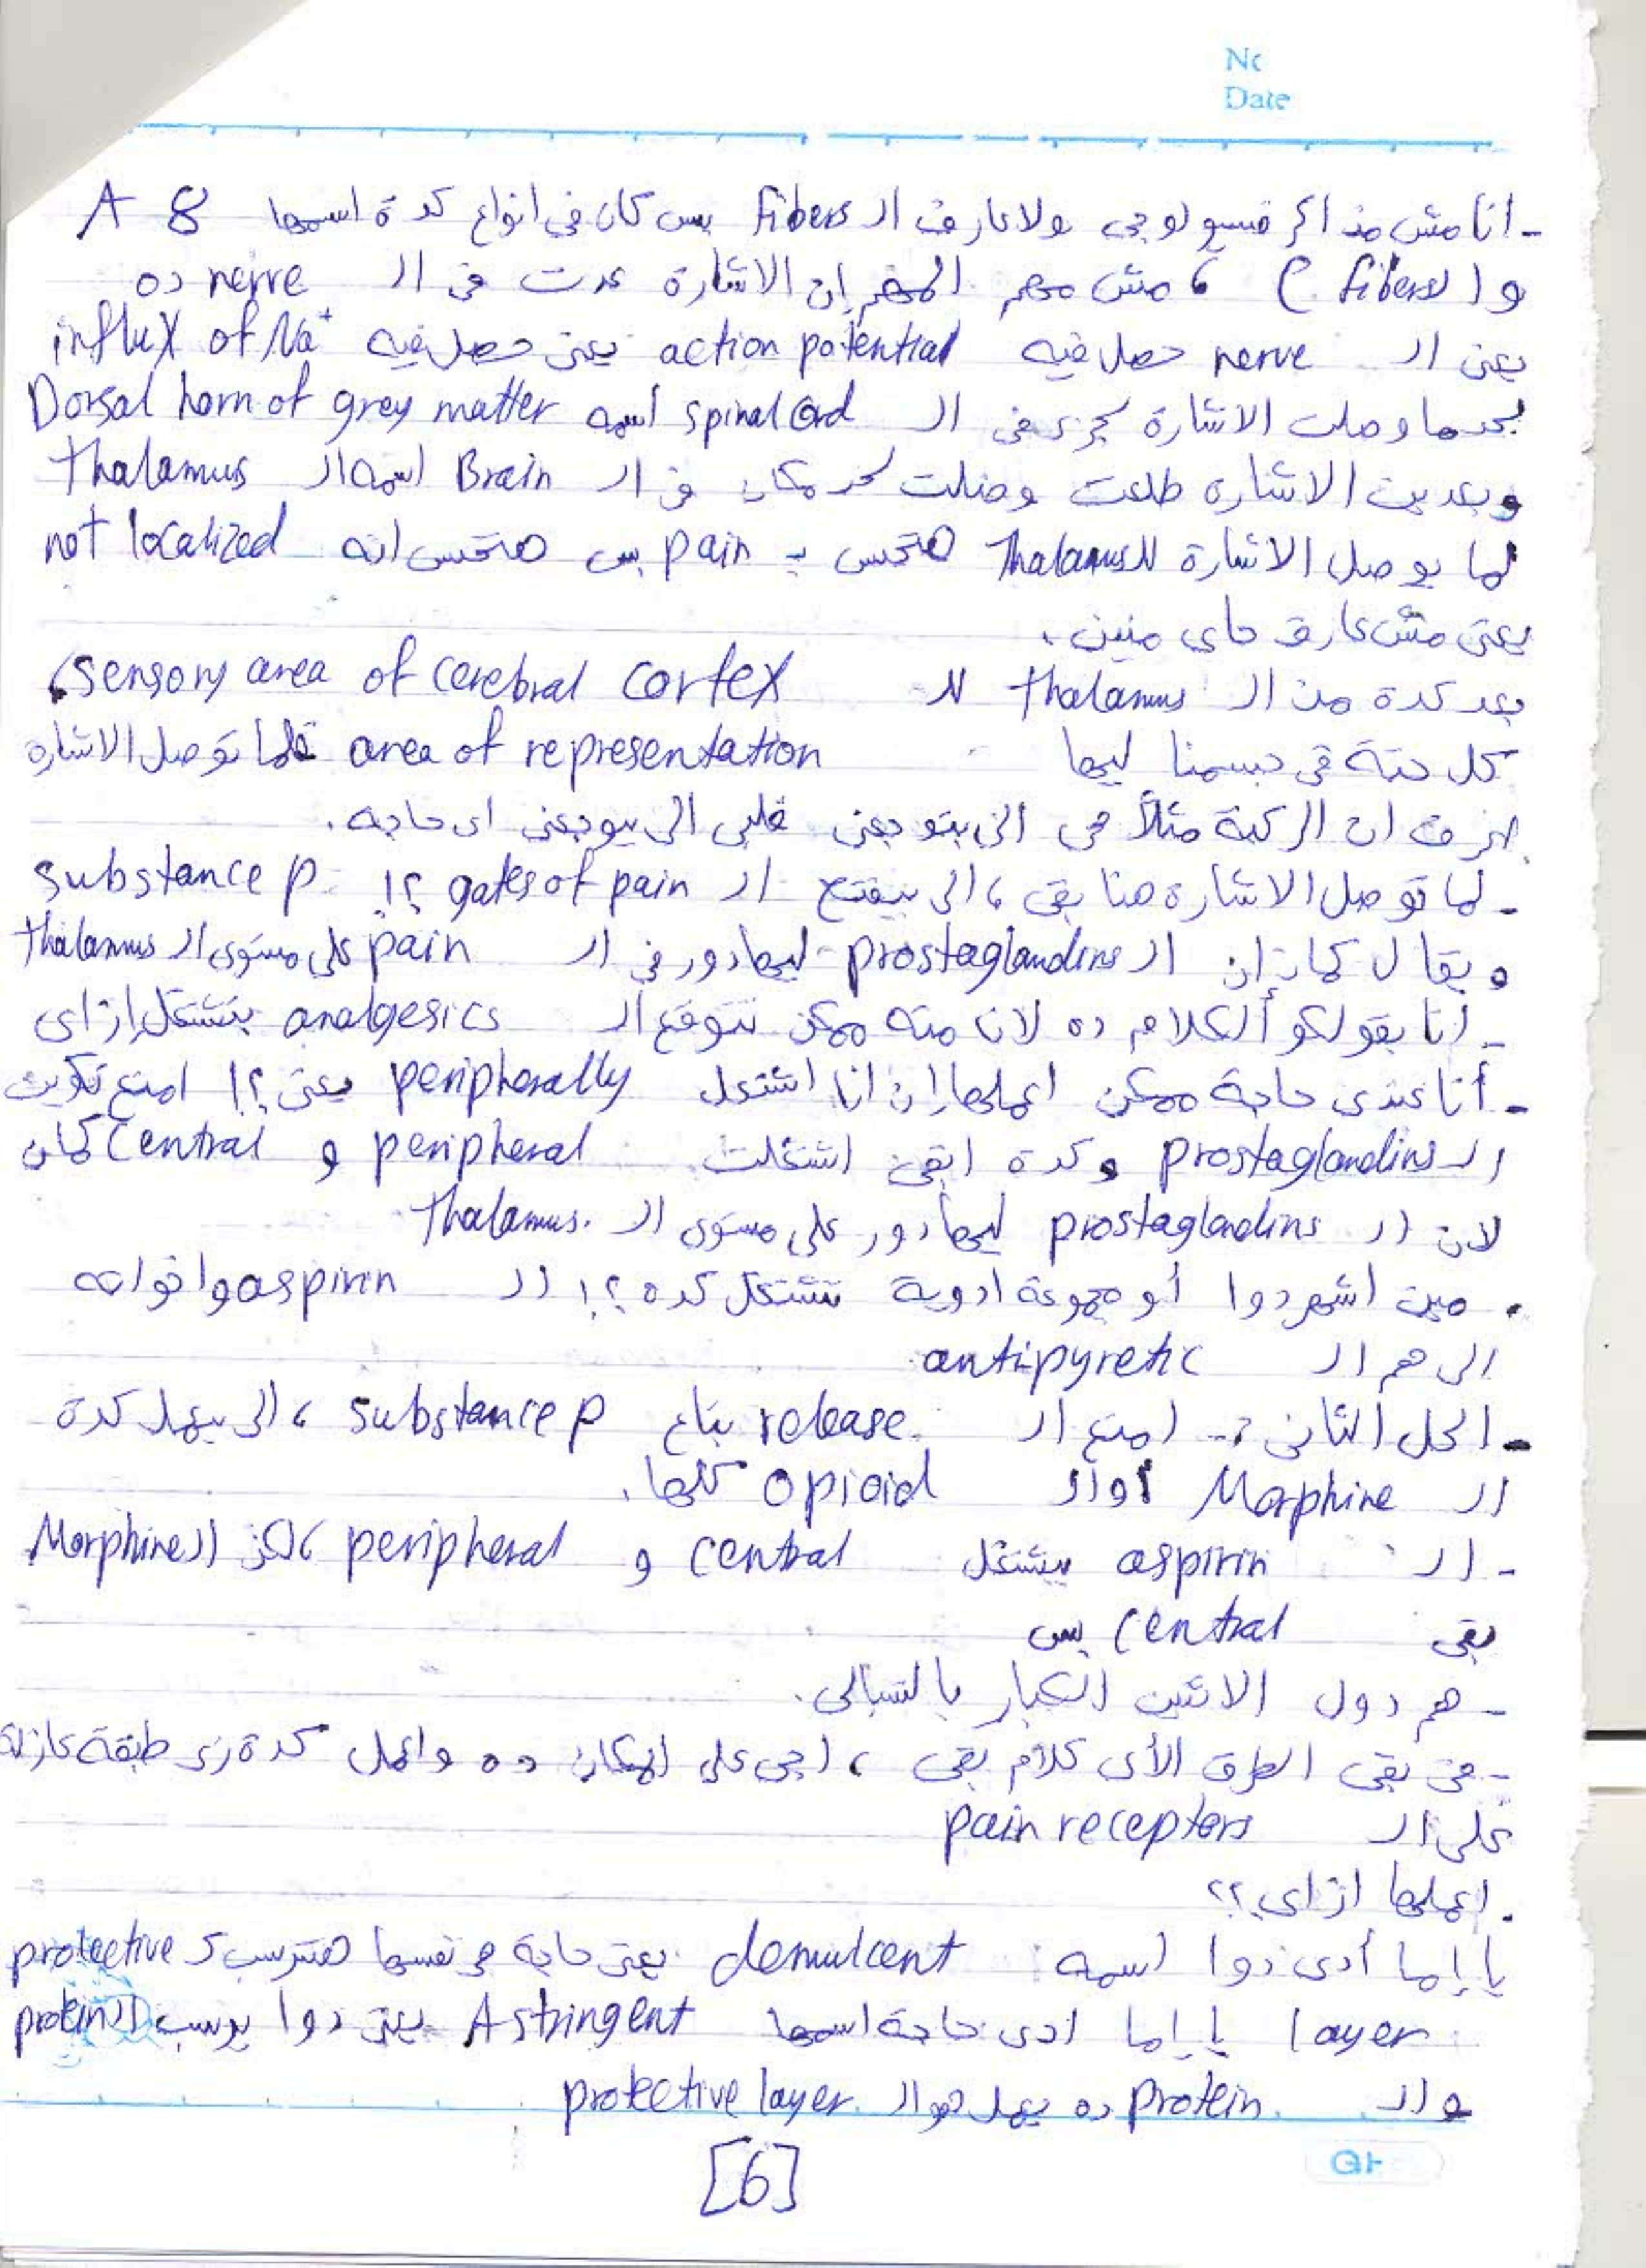 No
Date
- انا مش مذاكر فسيولوجى ولا عارف ال fibers بس كان فى انواع كدة اسمها A δ
و (C fibers) ، مش مهم المهم إن الاشارة عدت فى ال nerve ده
يعنى ال nerve حصل فيه action potential يعنى حصل فيه influx of Na+
بعدما وصلت الاشارة لجزء فى ال spinal cord اسمه Dorsal horn of grey matter
وبعدين الاشارة طلعت وصلت لحد مكان فى ال Brain اسمه ال Thalamus
لما يوصل الاشارة لل Thalamus هتحس بـ pain بس هتحس انه not localized
يعنى مش عارف جاى منين.
بعد كدة من ال thalamus لل sensory area of cerebral cortex،
كل حتة فى جسمنا ليها area of representation فلما توصل الاشارة
اعرف ان الركبة مثلاً هى الى بتوجعنى قلبى الى بيوجعنى اى حاجه.
- لما توصل الاشارة هنا بقى، الى بيفتح ال gates of pain ؟! substance p
ويقال كمان إن ال prostaglandins ليها دور فى ال pain على مستوى ال thalamus
- أنا بقولكو الكلام ده لان منه ممكن نتوقع ال analgesics بتشتغل ازاى
- أنا عندى حاجة ممكن اعملها إن انا اشتغل peripherally يعنى ؟! امنع تكوين
ال prostaglandins وكدة ابقى اشتغلت peripheral و central كمان
لان ال prostaglandins ليها دور على مستوى ال thalamus.
. مين اشهر دوا أو مجموعة ادوية تشتغل كده ؟! ال aspirin واخواته
الى هم ال antipyretic
- الحل الثانى :- امنع ال release بتاع substance p ، الى بيعمل كدة
ال Morphine أو ال opioid كلها.
- ال aspirin بيشتغل central و peripheral ، لكن ال Morphine
بقى central بس
- هم دول الاتنين الكبار بالنسبالى.
- فى بقى الطرق الأى كلام بقى ، اجى على المكان ده واعمل كدة زى طبقة عازلة
على ال pain receptors
. اعملها ازاى ؟؟
يا إما أدى دوا اسمه demulcent يعنى حاجة هى نفسها هتترسب كـ protective
layer يا إما ادى حاجة اسمها Astringent يعنى دوا يرسب ال protein
وال protein ده يعمل هو ال protective layer.
[6]